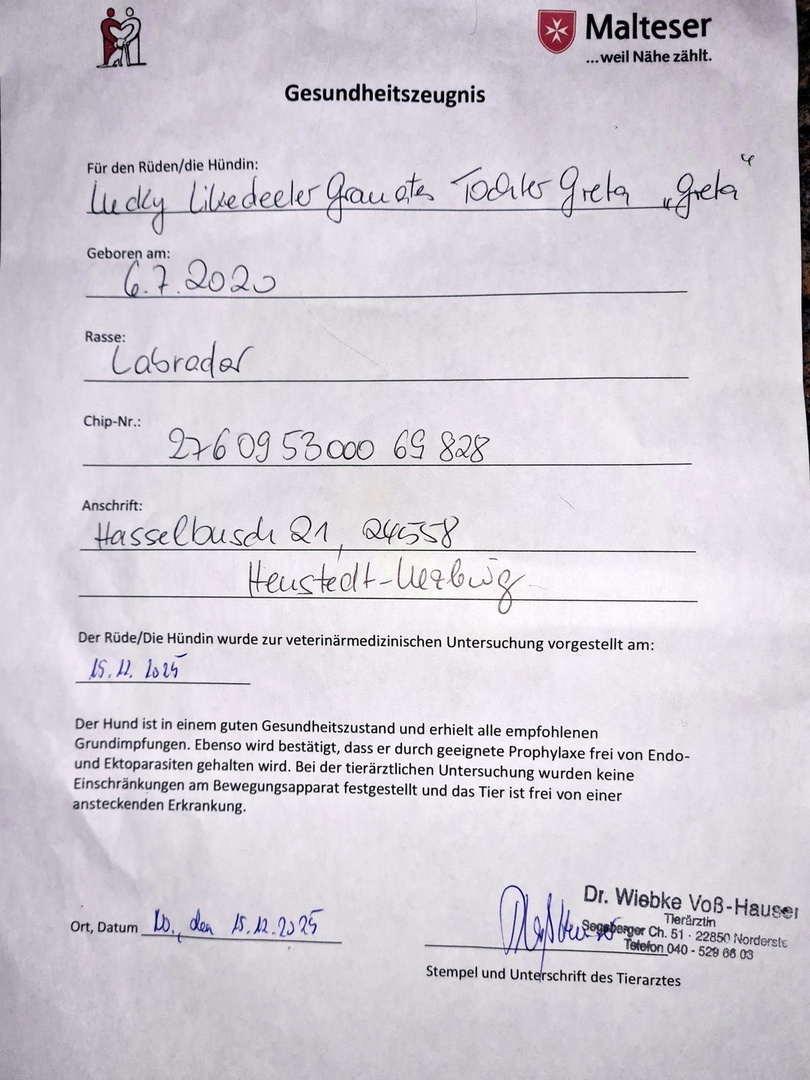 Malteser
...weil Nähe zählt.
Gesundheitszeugnis
Für den Rüden/die Hündin:
Lucky Likedeeler Granates Tochter Greta „Greta“
Geboren am:
6.7.2020
Rasse:
Labrador
Chip-Nr.:
276 09 53000 69 828
Anschrift:
Hasselbusch 21, 24558
Henstedt-Ulzburg
Der Rüde/Die Hündin wurde zur veterinärmedizinischen Untersuchung vorgestellt am:
15.12.2025
Der Hund ist in einem guten Gesundheitszustand und erhielt alle empfohlenen
Grundimpfungen. Ebenso wird bestätigt, dass er durch geeignete Prophylaxe frei von Endo-
und Ektoparasiten gehalten wird. Bei der tierärztlichen Untersuchung wurden keine
Einschränkungen am Bewegungsapparat festgestellt und das Tier ist frei von einer
ansteckenden Erkrankung.
Ort, Datum den 15.12.2025
Dr. Wiebke Voß-Hauser
Tierärztin
Segeberger Ch. 51 · 22850 Norderste
Telefon 040 - 529 66 03
Stempel und Unterschrift des Tierarztes